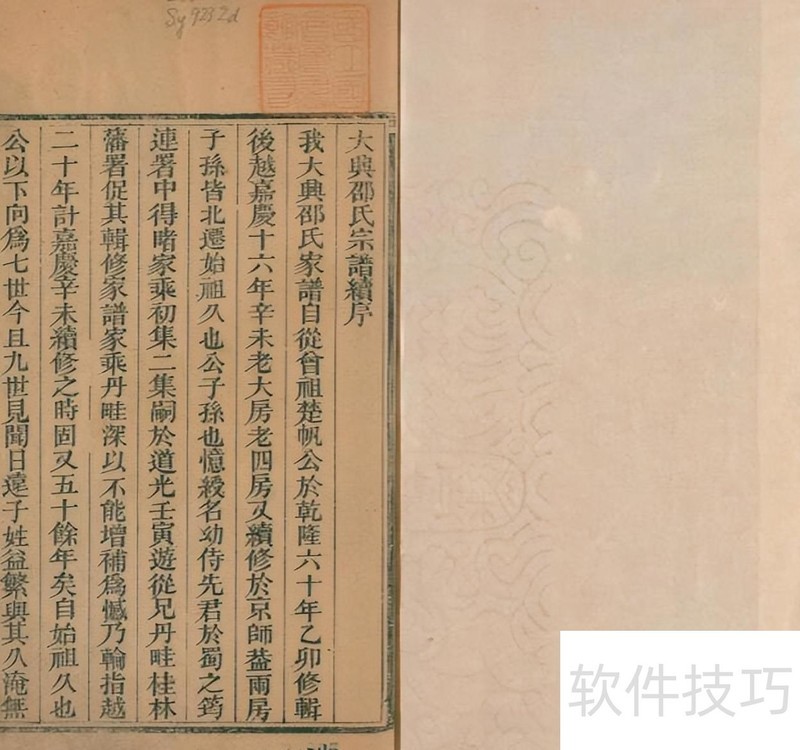 Sy 9232d
大興邵氏宗譜續序
我大興邵氏家譜自從曾祖楚帆公於乾隆六十年乙卯修輯
後越嘉慶十六年辛未老大房老四房又續修於京師蓋兩房
子孫皆北遷始祖久也公子孫也憶綬名幼侍先君於蜀之筠
連署中得睹家乘初集二集嗣於道光壬寅遊從兄丹畦桂林
藩署促其輯修家譜家乘丹畦深以不能增補為憾乃輪指越
二十年計嘉慶辛未續修之時固又五十餘年矣自始祖久也
公以下向為七世今且九世見聞日遠子姓益繁與其久淹無
软件技巧